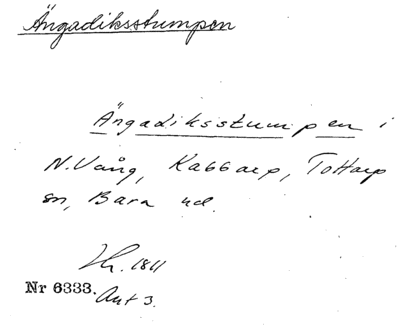 Ängadiksstumpen
Ängadiksstumpen i
N. Vång, Kabbarp, Tottarp
sn, Bara hd.
Hr. 1811
Nr 6333. Akt 3.